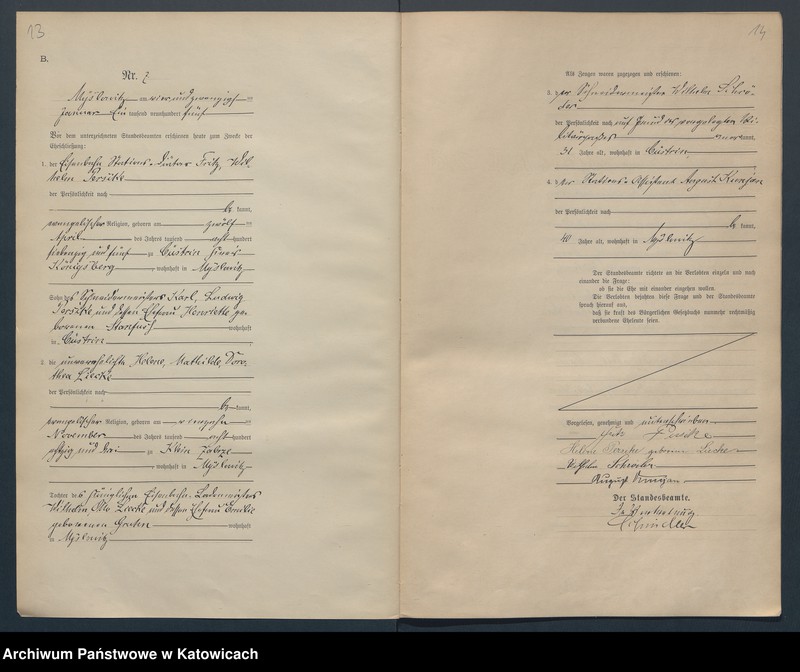 13
B.
Nr. 7
Myslowitz am vier und zwanzigsten
Januar Ein tausend neunhundert fünf
Vor dem unterzeichneten Standesbeamten erschienen heute zum Zwecke der
Eheschließung:
1. der Eisenbahn Stations-Diätar Fritz, Wil-
helm
der Persönlichkeit nach
be kannt,
evangelischer Religion, geboren am zwölften
April des Jahres tausend acht hundert
siebenzig und fünf zu Cüstrin Kreis
Königsberg, wohnhaft in Myslowitz
Sohn des Schneidermeisters Karl, Ludwig
und dessen Ehefrau Henriette ge-
borenen wohnhaft
in Cüstrin
2. die unverehelichte Helene, Mathilde, Doro-
thea Liecke
der Persönlichkeit nach
be kannt,
evangelischer Religion, geboren am
November des Jahres tausend acht hundert
achtzig und drei zu Klein Zabrze
, wohnhaft in Myslowitz
Tochter des Königlichen Eisenbahn-Lademeisters
Wilhelm, Otto Liecke und dessen Ehefrau Emilie
geborenen wohnhaft
in Myslowitz
14
Als Zeugen waren zugezogen und erschienen:
3. der Schneidermeister Wilhelm Schrö-
der
der Persönlichkeit nach auf Grund des vorgelegten Mi-
litärpasses anerkannt,
31 Jahre alt, wohnhaft in Cüstrin
4. der Stations-Assistent August
der Persönlichkeit nach
be kannt,
40 Jahre alt, wohnhaft in Myslowitz
Der Standesbeamte richtete an die Verlobten einzeln und nach
einander die Frage:
ob sie die Ehe mit einander eingehen wollen.
Die Verlobten bejahten diese Frage und der Standesbeamte
sprach hierauf aus,
daß sie kraft des Bürgerlichen Gesetzbuchs nunmehr rechtmäßig
verbundene Eheleute seien.
Vorgelesen, genehmigt und unterschrieben
Fritz
Helene geborene Liecke
Wilhelm Schröder
August
Der Standesbeamte.
In Vertretung
Archiwum Państwowe w Katowicach